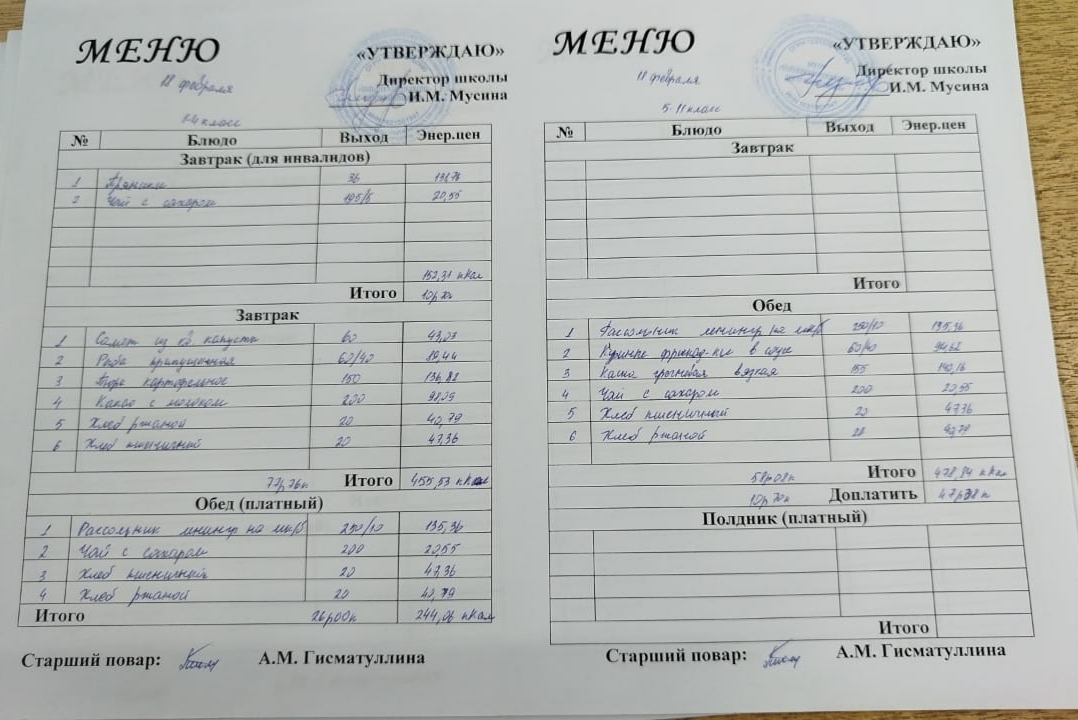 МЕНЮ
«УТВЕРЖДАЮ»
18 февраля
Директор школы
И.М. Мусина
1-4 класс
№ Блюдо Выход Энер.цен
Завтрак (для инвалидов)
1 Пряники 36 131,76
2 Чай с сахаром 195/5 20,55
152,31 кКал
Итого 10р70к
Завтрак
1 Салат из капусты 60 43,03
2 Рыба припущенная 60/40
3 Пюре картофельное 150 136,88
4 Какао с молоком 200
5 Хлеб ржаной 20 40,79
6 Хлеб пшеничный 20 47,36
77р76к Итого 455,53 кКал
Обед (платный)
1 Рассольник ленингр на мкб 250/10 135,36
2 Чай с сахаром 200 20,55
3 Хлеб пшеничный 20 47,36
4 Хлеб ржаной 20 40,79
Итого 26р00к 244,06 кКал
Старший повар: А.М. Гисматуллина
МЕНЮ
«УТВЕРЖДАЮ»
18 февраля
Директор школы
И.М. Мусина
5-11 класс
№ Блюдо Выход Энер.цен
Завтрак
Итого
Обед
1 Рассольник ленингр на мкб 250/10 135,36
2 фрикад-ки в соусе 94,62
3 Каша вязкая 155 140,16
4 Чай с сахаром 200 20,55
5 Хлеб пшеничный 20 47,36
6 Хлеб ржаной 20 40,79
58р08к Итого 478,84 кКал
10р70к Доплатить 47р38к
Полдник (платный)
Итого
Старший повар: А.М. Гисматуллина